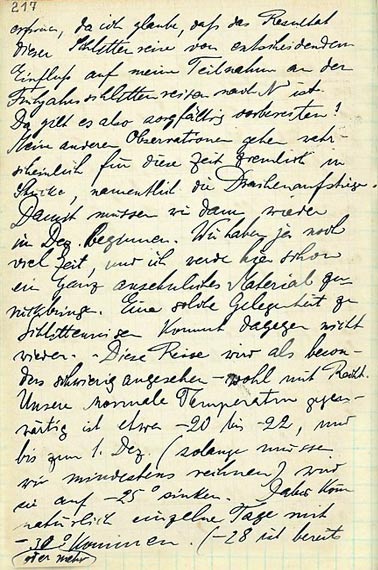 217
da ich glaube, daß das Resultat
dieser Schlittenreise von entscheidendem
Einfluß auf meine Teilnahme an der
Frühjahrsschlittenreisen nach N ist.
Da gilt es also sorgfältig vorbereiten!
Meine anderen Observationen gehen wahr-
scheinlich für diese Zeit ziemlich in
Stücke, namentlich die Drachenaufstiege.
Damit müssen wir dann wieder
in Dez. beginnen. Wir haben ja noch
viel Zeit, und ich werde hier schon
ein ganz ansehnliches Material zu-
Eine solche Gelegenheit zu
Schlittenreisen kommt dagegen nicht
wieder. - Diese Reise wird als beson-
ders schwierig angesehen - wohl mit Recht.
Unsere normale Temperatur gegen-
wärtig ist etwa -20 bis -22, und
bis zum 1. Dez. (solange müssen
wir mindestens rechnen) wird
sie auf -25° sinken. Dabei kön
natürlich einzelne Tage mit
-30° kommen. (-28 ist bereits
oder mehr